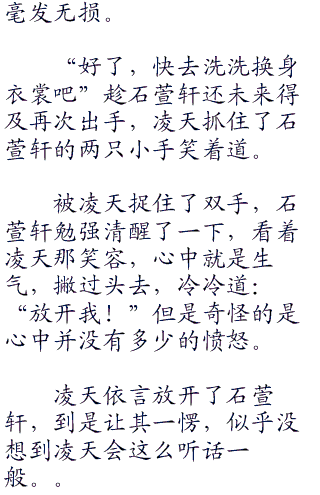 毫发无损。
“好了，快去洗洗换身
衣裳吧”趁石萱轩还未来得
及再次出手，凌天抓住了石
萱轩的两只小手笑着道。
被凌天捉住了双手，石
萱轩勉强清醒了一下，看着
凌天那笑容，心中就是生
气，撇过头去，冷冷道：
“放开我！”但是奇怪的是
心中并没有多少的愤怒。
凌天依言放开了石萱
轩，到是让其一愣，似乎没
想到凌天会这么听话一
般。。